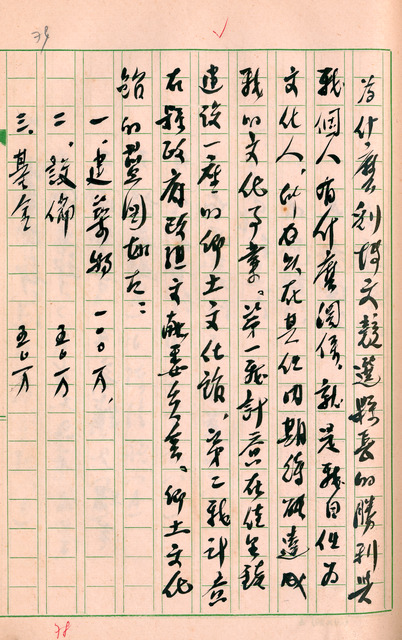 為什麼利博文競選縣長的勝利與
我個人有什麼關係，就是我自任為
文化人，所以在其任內期待破達成
我的文化事業。第一我計劃在佳里鎮
建設一座的鄉土文化館，第二我計劃
在縣政府改組文献委員會。鄉土文化
館的藍圖如左：
一、建築物 一〇〇万，
二、設備 五〇万
三、基金 五〇万
78